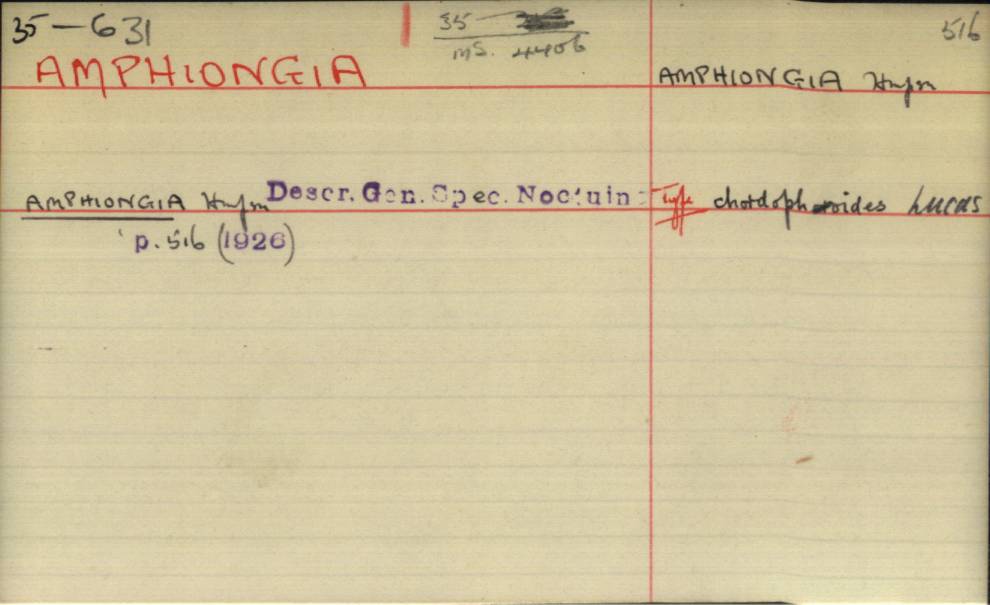 35-631
35
MS. 4406
516
AMPHIONGIA
AMPHIONGIA Hmpsn
AMPHIONGIA Hmpsn Descr. Gen. Spec. Noctuin
p. 516 (1926)
Type chordophoides Lucas